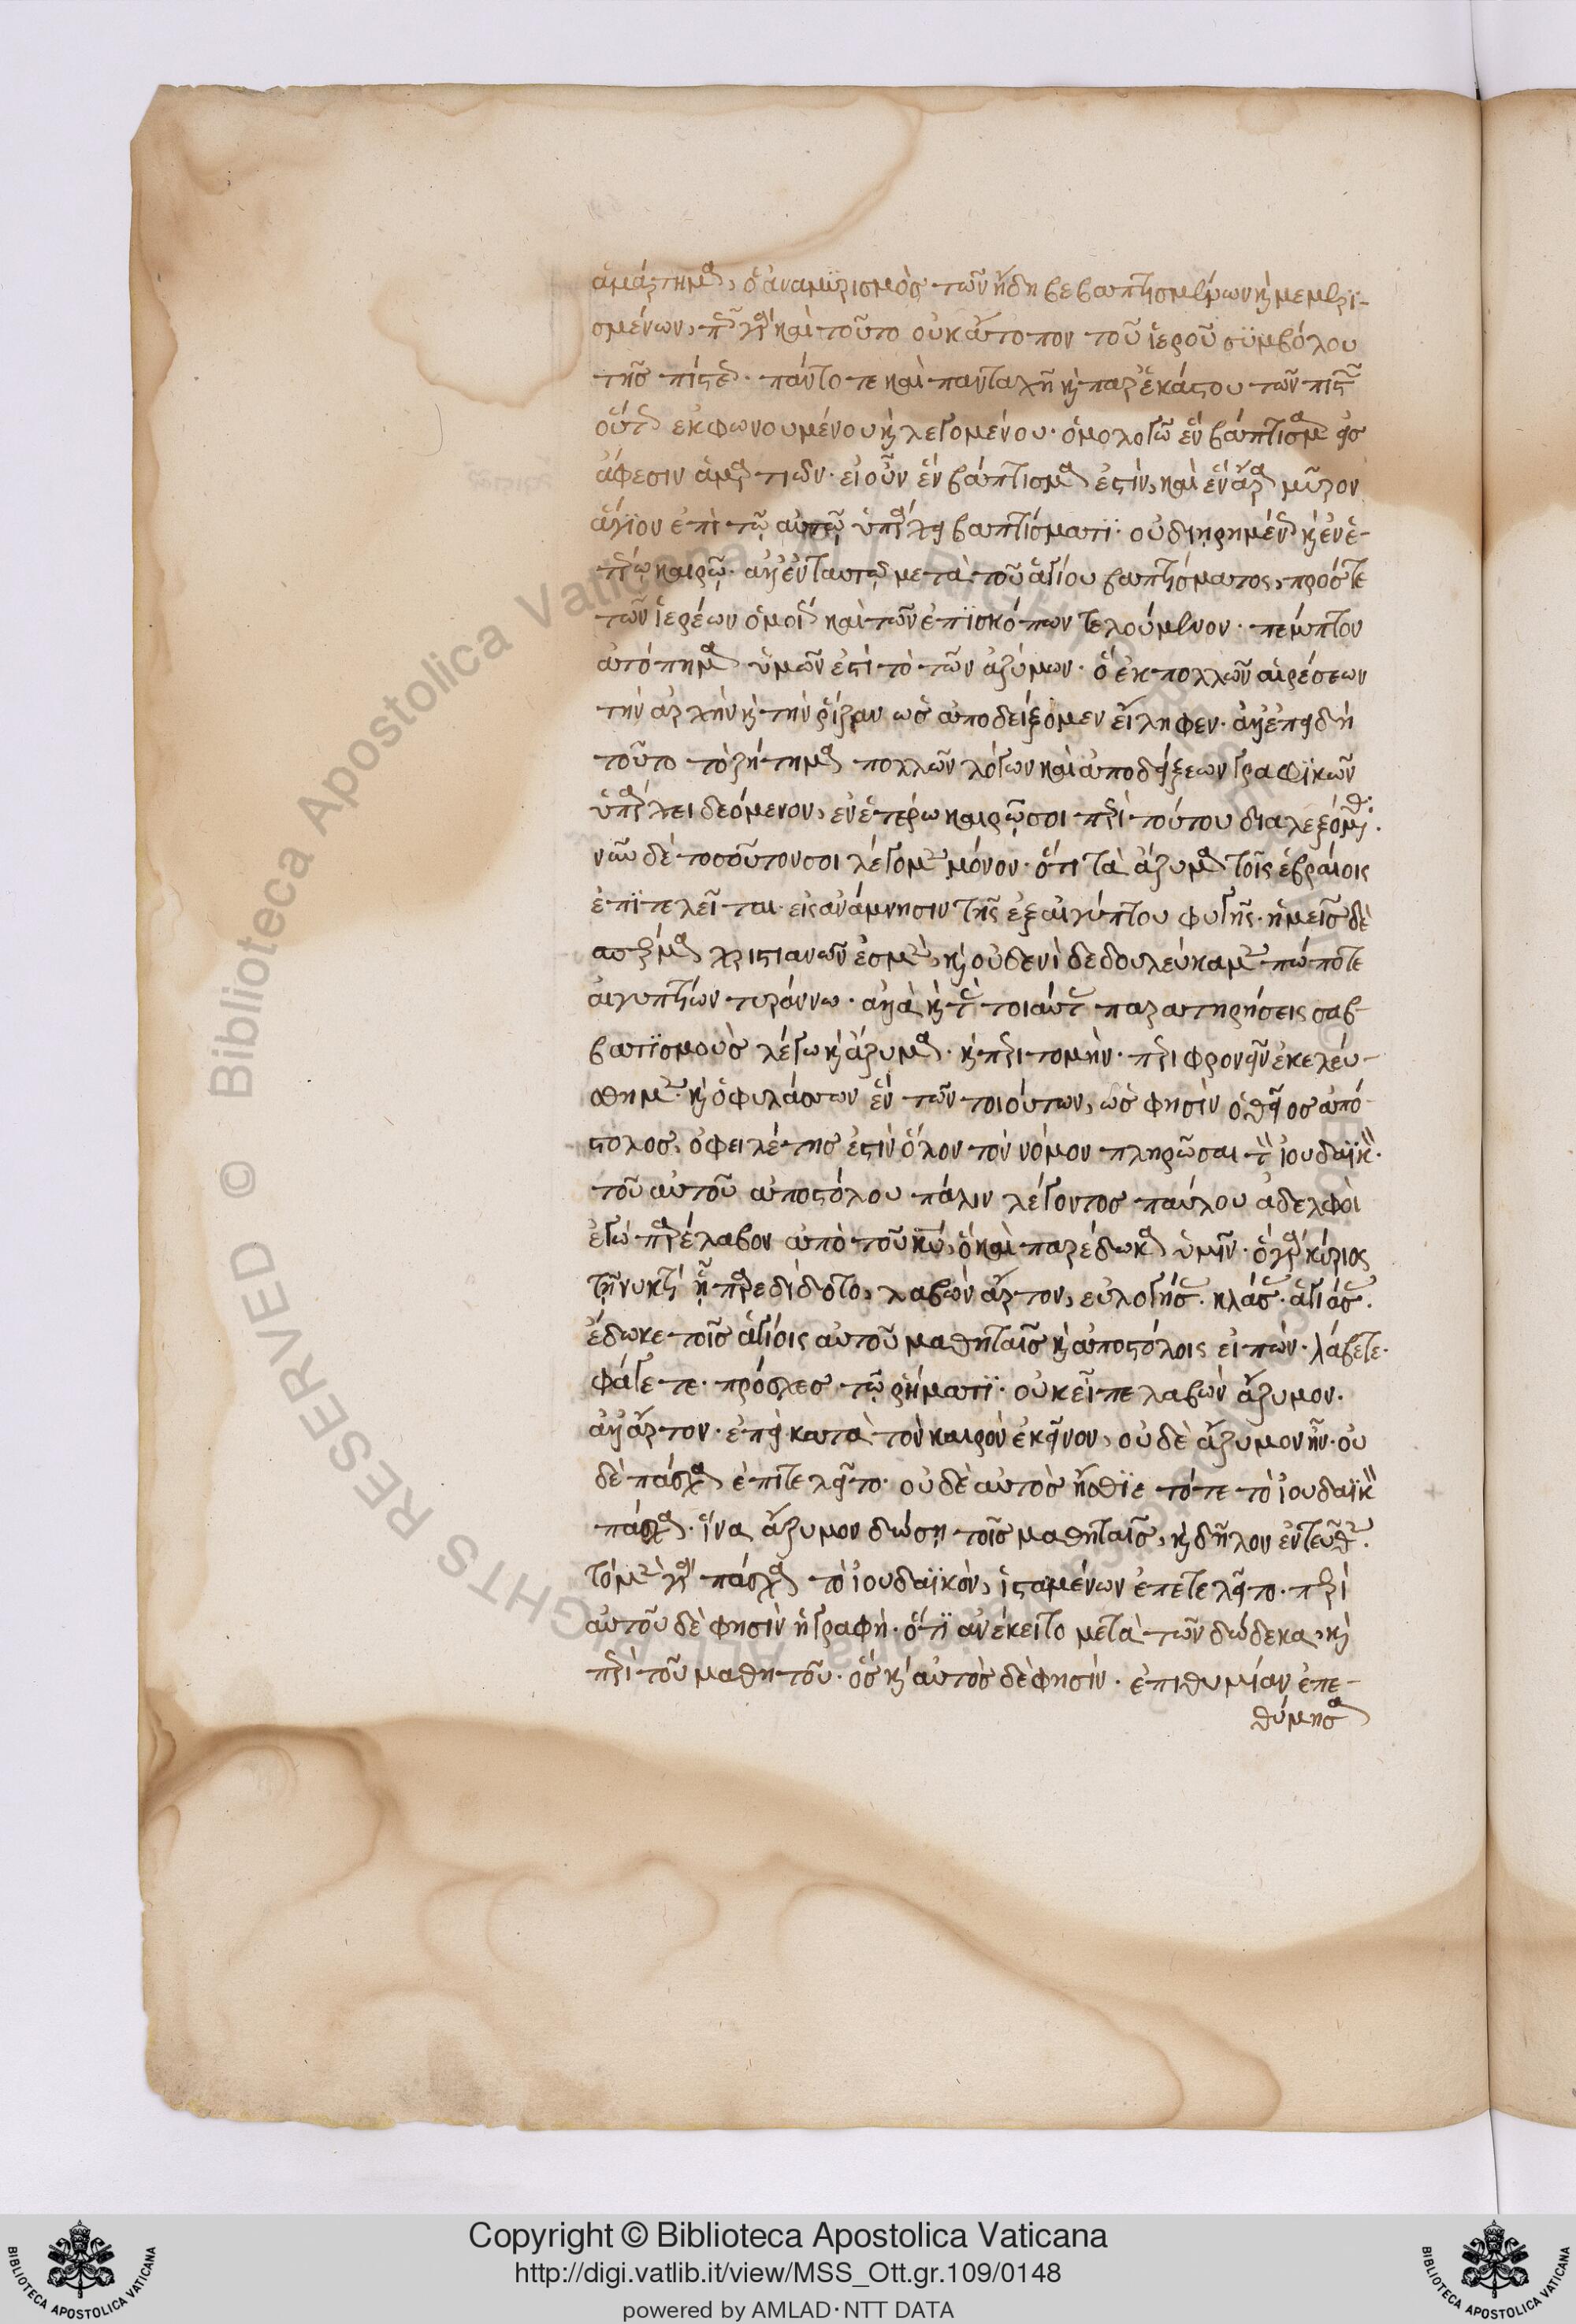 ἁμάρτημα, ὁ ἀναμϋρισμὸς τῶν ἤδη βεβαπτισμένων κ μεμυρϊ-
σμένων, πῶς γὰρ καὶ τοῦτο οὐκ ἄτοπον τοῦ ἱεροῦ σϋμβόλου
τῆς πίστεως. πάντοτε καὶ πανταχῆ κ παρ' ἑκάστου τῶν πιστῶν
οὕτως ἐκφωνουμένου κ λεγομένου. ὁμολογῶ ἓν βάπτισμα εἰς
ἄφεσιν ἁμαρτιῶν. εἰ οὖν ἓν βάπτισμα ἐστὶν, καὶ ἓν ἄρα μῦρον
ἅγϊον ἐπὶ τῷ αὐτῷ ὑπάρχει βαπτίσματϊ. οὐ διῃρημένως κ ἐν ἑ-
τέρῳ καιρῷ. ἀλλ' ἐν ταυτῷ μετὰ τοῦ ἁγίου βαπτίσματος, πρός τε
τῶν ἱερέων ὁμοίως καὶ τῶν ἐπϊσκόπων τελούμενον. πέμπτον
ἀτόπημα ὑμῶν ἐστὶ τὸ τῶν ἀζύμων. ὃ ἐκ πολλῶν αἱρέσεων
τὴν ἀρχὴν κ τὴν ῥίζαν ὡς ἀποδείξομεν εἴληφεν. ἀλλ' ἐπειδὴ
τοῦτο τὸ ζήτημα πολλῶν λόγων καὶ ἀποδείξεων γραφϊκῶν
ὑπάρχει δεόμενον, ἐν ἑτέρω καιρῷ σοι περὶ τούτου διαλεξόμεθα.
νῦν δὲ τοσοῦτον σοι λέγομεν μόνον. ὅτι τὰ ἄζυμα τοῖς ἑβραίοις
ἐπϊτελεῖται εἰς ἀνάμνησιν τῆς ἐξ αἰγύπτου φυγῆς. ἡμεῖς δὲ
χριστιανῶν ἐσμὲν, κ οὐδενὶ δεδουλεύκαμεν πώποτε
αἰγυπτίων τυράννω. ἀλλὰ κ τὰς τοιαύτας παρατηρήσεις σαβ-
βατϊσμοὺς λέγω κ ἄζυμα. κ περιτομὴν. περιφρονεῖν ἐκελεύ-
σθημεν. κ ὁ φυλάττων ἓν τῶν τοιούτων, ὡς φησὶν ὁ θεῖος ἀπό
στολος, ὀφειλέτης ἐστὶν ὅλον τὸν νόμον πληρῶσαι τὸν ἰουδαϊκόν.
τοῦ αὐτοῦ ἀποστόλου πάλιν λέγοντος παύλου ἀδελφοὶ
ἐγὼ παρέλαβον ἀπὸ τοῦ κυ, ὃ καὶ παρέδωκα ὑμῖν. ὁ γὰρ κύριος
τῇ νυκτὶ ᾗ παρεδίδοτο, λαβὼν ἄρτον, εὐλογήσας. κλάσας. ἁγιάσας.
ἔδωκε τοῖς ἁγίοις αὐτοῦ μαθηταῖς κ ἀποστόλοις εἰπών. λάβετε.
φάγετε. πρόσχες τῷ ῥήματϊ. οὐκ εἶπε λαβὼν ἄζυμον.
ἀλλ' ἄρτον. ἐπεὶ κατὰ τὸν καιρὸν ἐκεῖνον, οὐδὲ ἄζυμον ἦν. οὐ
δὲ πάσχα ἐπιτελεῖτο. οὐδὲ αὐτὸς ἤσθϊε τότε τὸ ἰουδαϊκὸν
πάσχα. ἵνα ἄζυμον δώσῃ τοῖς μαθηταῖς, κ δῆλον ἐντεῦθεν.
τὸ μὲν γὰρ πάσχα τὸ ἰουδαϊκὸν, ἱσταμένων ἐπετελεῖτο. περὶ
αὐτοῦ δὲ φησὶν ἡ γραφὴ. ὅτϊ ἀνέκειτο μετὰ τῶν δώδεκα, κ
περὶ τοῦ μαθητοῦ. ὃς κ αὐτὸς δὲ φησίν. ἐπιθυμίαν ἐπε-
θύμησα